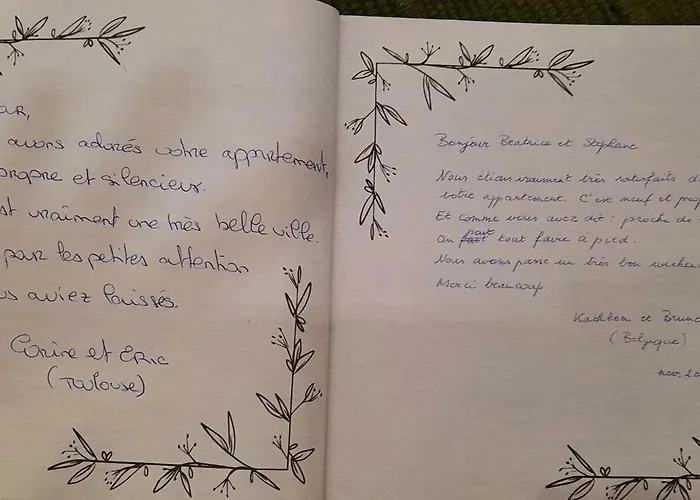 avons adorés votre appartement,
propre et silencieux.
st vraiment une très belle ville.
pour les petites attention
us aviez laissés.
Corine et Eric
(Toulouse)
Bonjour Beatrice et Stephane
Nous étions vraiment très satisfaits d
votre appartement. C'est neuf et prop
Et comme vous avez dit : proche de
On peut tout faire à pied.
Nous avons passé un très bon weeken
Merci beaucoup
Kathleen et Bruno
(Belgique)
nov. 20